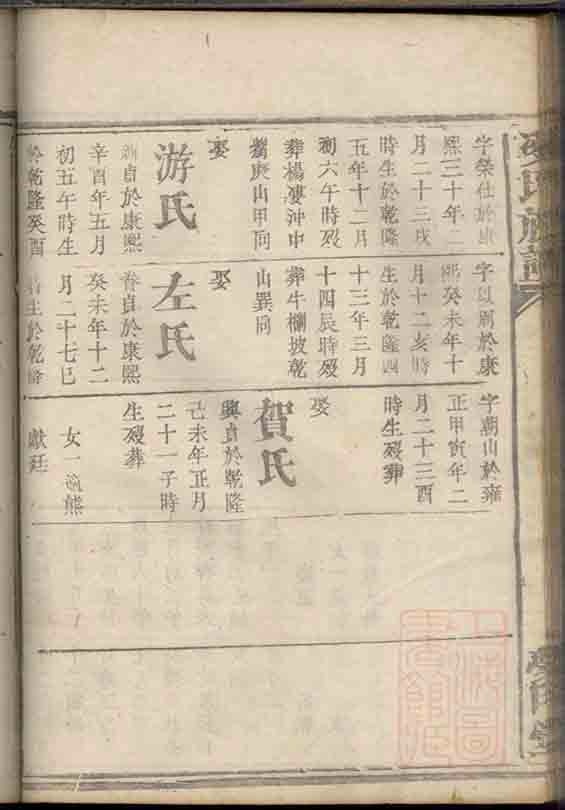 字榮仕於康
熙三十年二
月二十三戌
時生於乾隆
五年十二月
初六午時歿
葬楊婁沖中
山甲同
娶
游氏
貞於康熙
辛酉年五月
初五午時生
於乾隆癸酉
字以剛於康
熙癸未年十
月十二亥時
生於乾隆四
十三年三月
十四辰時歿
葬牛欄坡乾
山巽同
娶
左氏
貞於康熙
癸未年十二
月二十七巳
時生於乾隆
字朝山於雍
正甲寅年二
月二十三酉
時生歿葬
娶
賀氏
興貞於乾隆
己未年正月
二十一子時
生歿葬
女一適熊
獻廷
氏族譜
上海圖書館藏